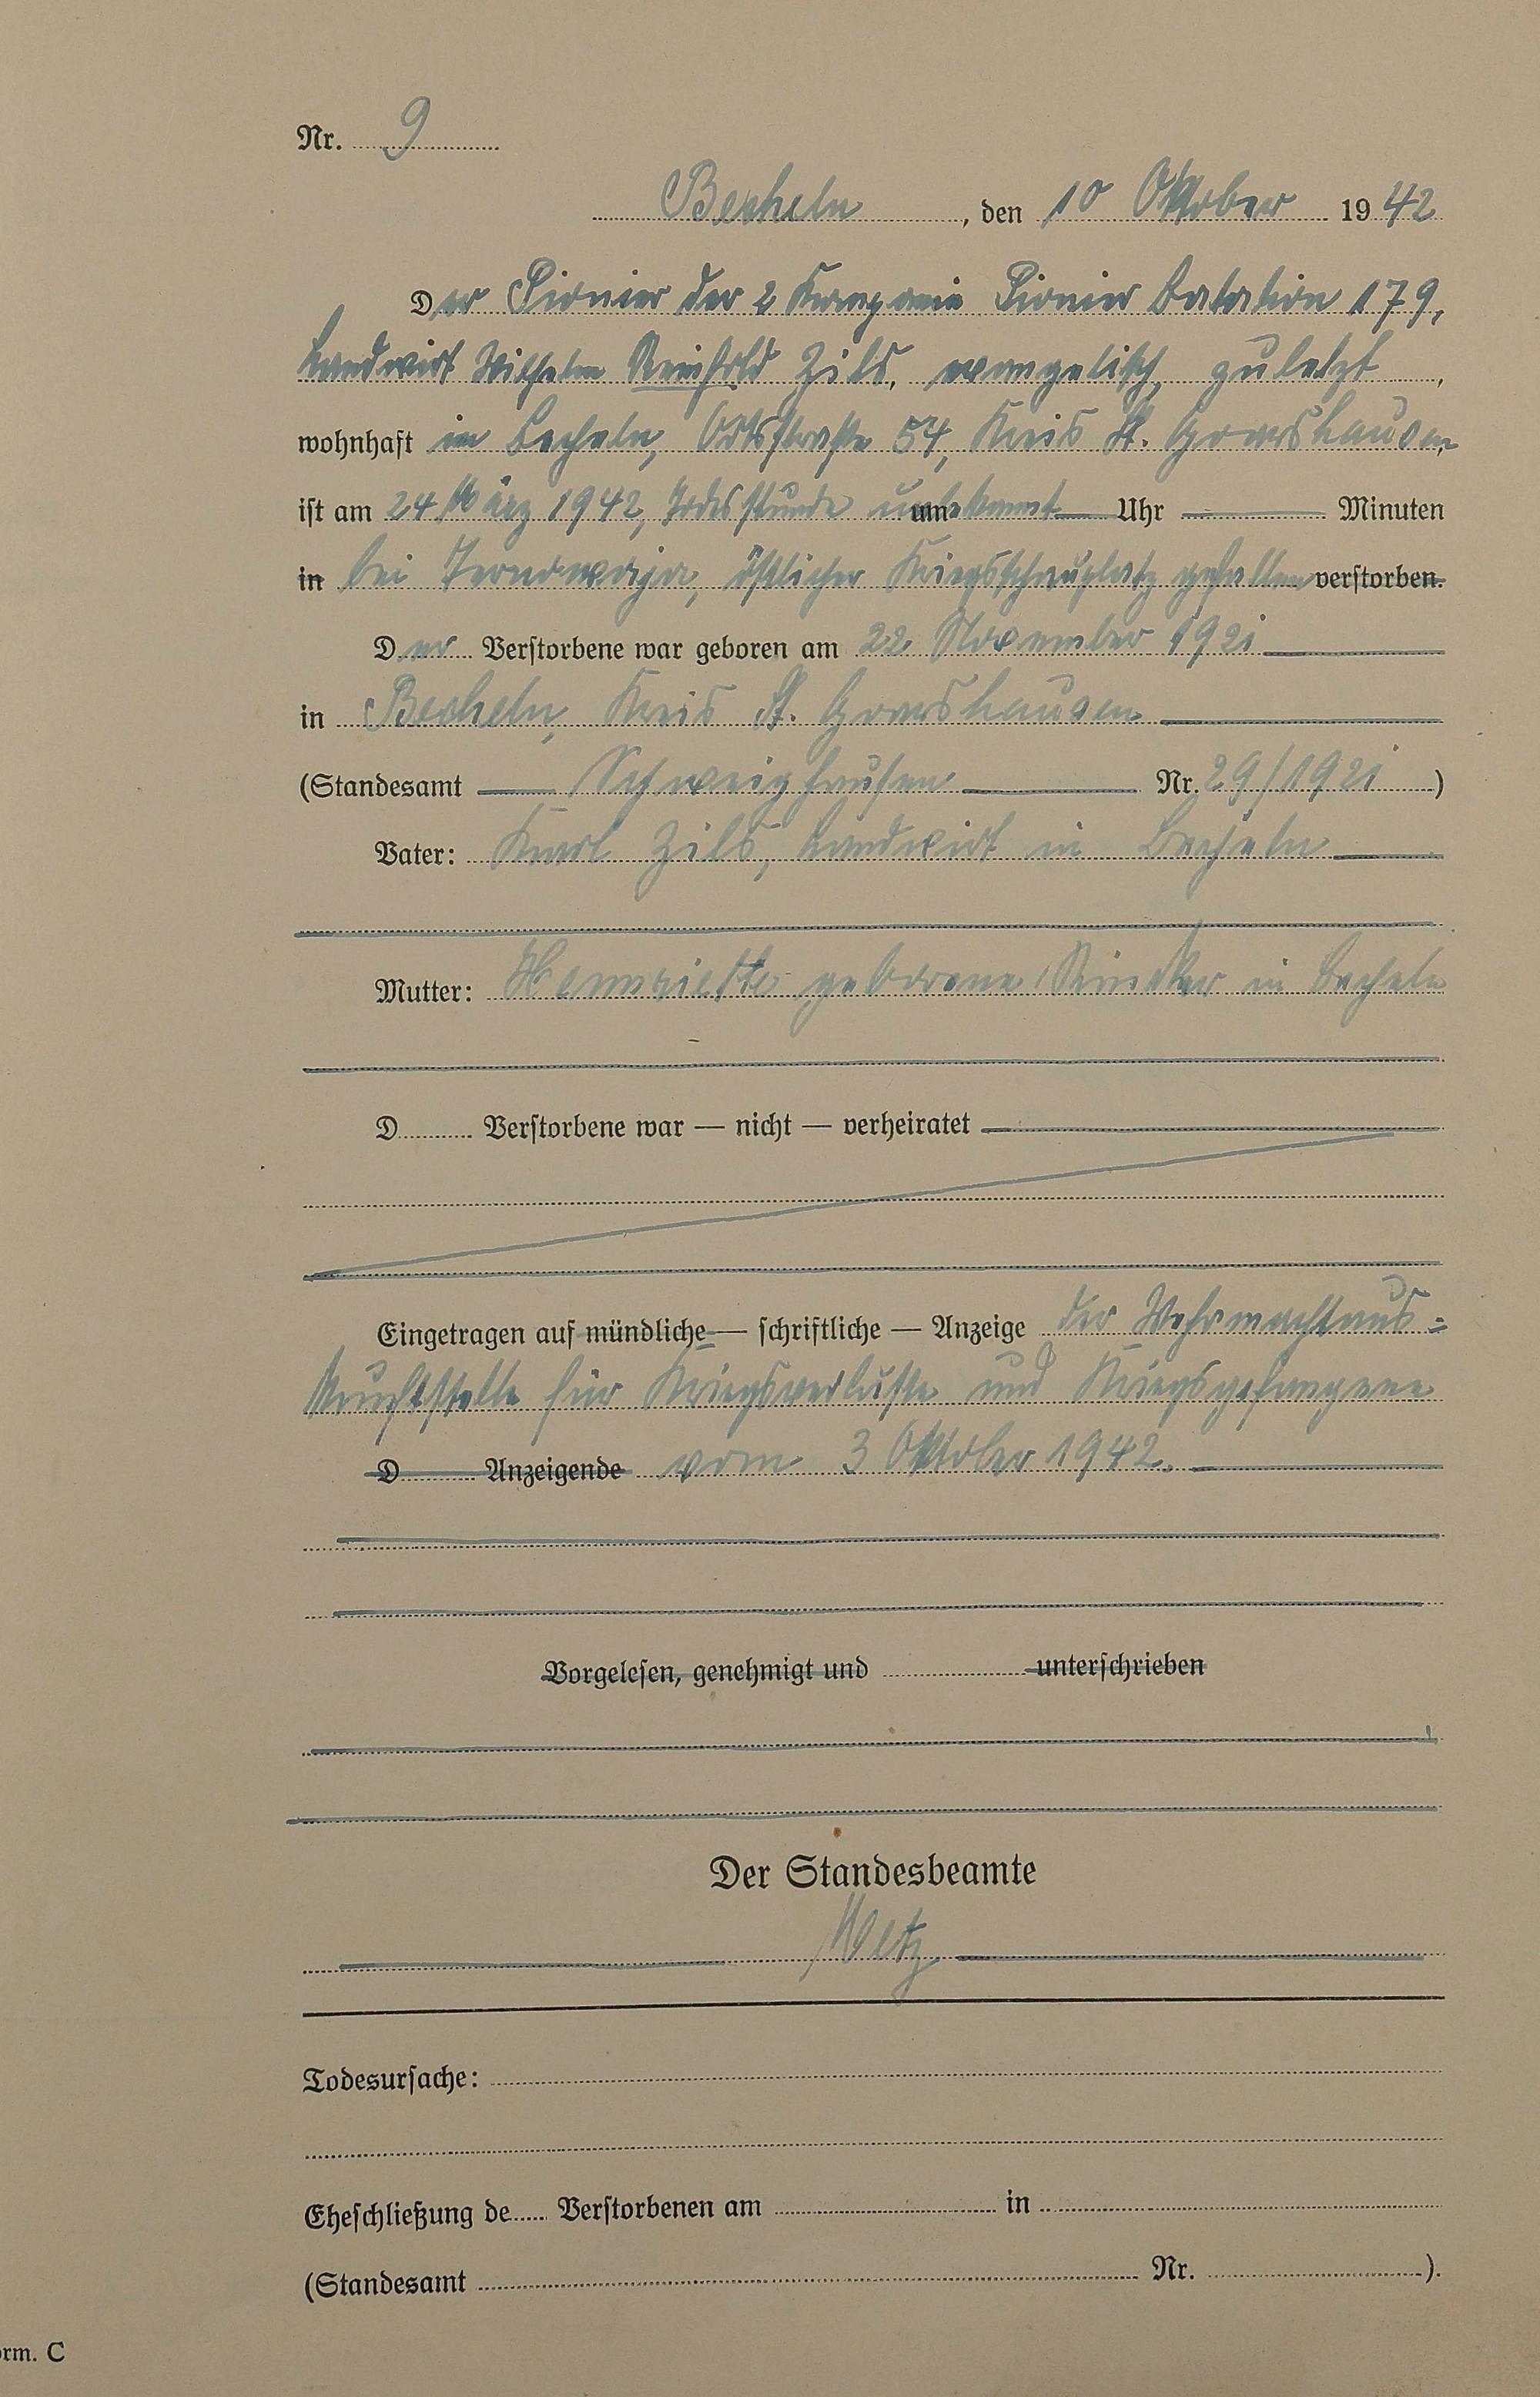 Nr. 9
Becheln, den 10 Oktober 1942
Der Pionier der 2 Kompanie Pionier Batalion 179,
Landwirt Wilhelm Reinhold Zils, evangelisch, zuletzt,
wohnhaft in Becheln, Ortsstraße 54, Kreis St. Goarshausen,
ist am 24 März 1942, Todesstunde um unbekannt Uhr Minuten
in bei Ternowaja, östlicher Kriegsschauplatz gefallen verstorben.
Der Verstorbene war geboren am 22. November 1921
in Becheln, Kreis St. Goarshausen
(Standesamt Schweighausen Nr. 29/1921)
Vater: Karl Zils, Landwirt in Becheln
Mutter: Hennriette geborene in Becheln
D Verstorbene war — nicht — verheiratet
Eingetragen auf mündliche — schriftliche — Anzeige der Wehrmachtaus=
kunftstelle für Kriegsverluste und Kriegsgefangene
D Anzeigende vom 3 Oktober 1942.
Vorgelesen, genehmigt und unterschrieben
Der Standesbeamte
Metz
Todesursache:
Eheschließung de Verstorbenen am in
(Standesamt Nr. ).
orm. C